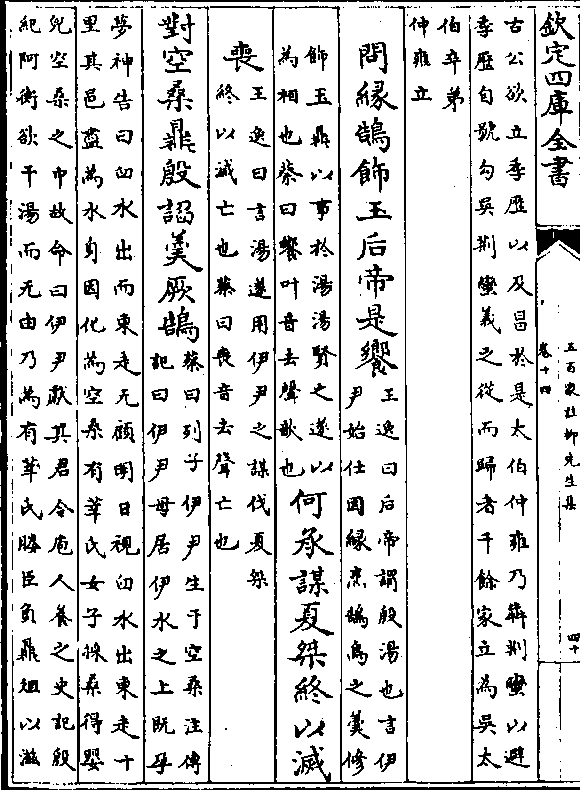 欽定四庫全書
五百家註柳先生集
卷十四
四十
古公欲立季歷以及昌於是太伯仲雍乃犇荆蠻以避
季歷自號勾吳荆蠻義之從而歸者千餘家立為吳太
伯卒弟
仲雍立
問緣鵠飾玉后帝是饗
王逸曰后帝謂殷湯也言伊
尹始仕因緣烹鵠鳥之羹修
飾玉鼎以事於湯湯賢之遂以
為相也蔡曰饗叶音去聲歆也
何承謀夏桀終以滅
喪
王逸曰言湯遂用伊尹之謀伐夏桀
終以滅亡也蔡曰喪音去聲亡也
對空桑鼎殷謟羹厥鵠
蔡曰列子伊尹生于空桑注傳
記曰伊尹母居伊水之上既孕
夢神告曰臼水出而東走无顧明日視臼水出東走十
里其邑盡為水身因化為空桑有莘氏女子採桑得嬰
兒空桑之中故命曰伊尹獻其君令庖人養之史記殷
紀阿衡欲干湯而无由乃為有莘氏媵臣負鼎俎以滋